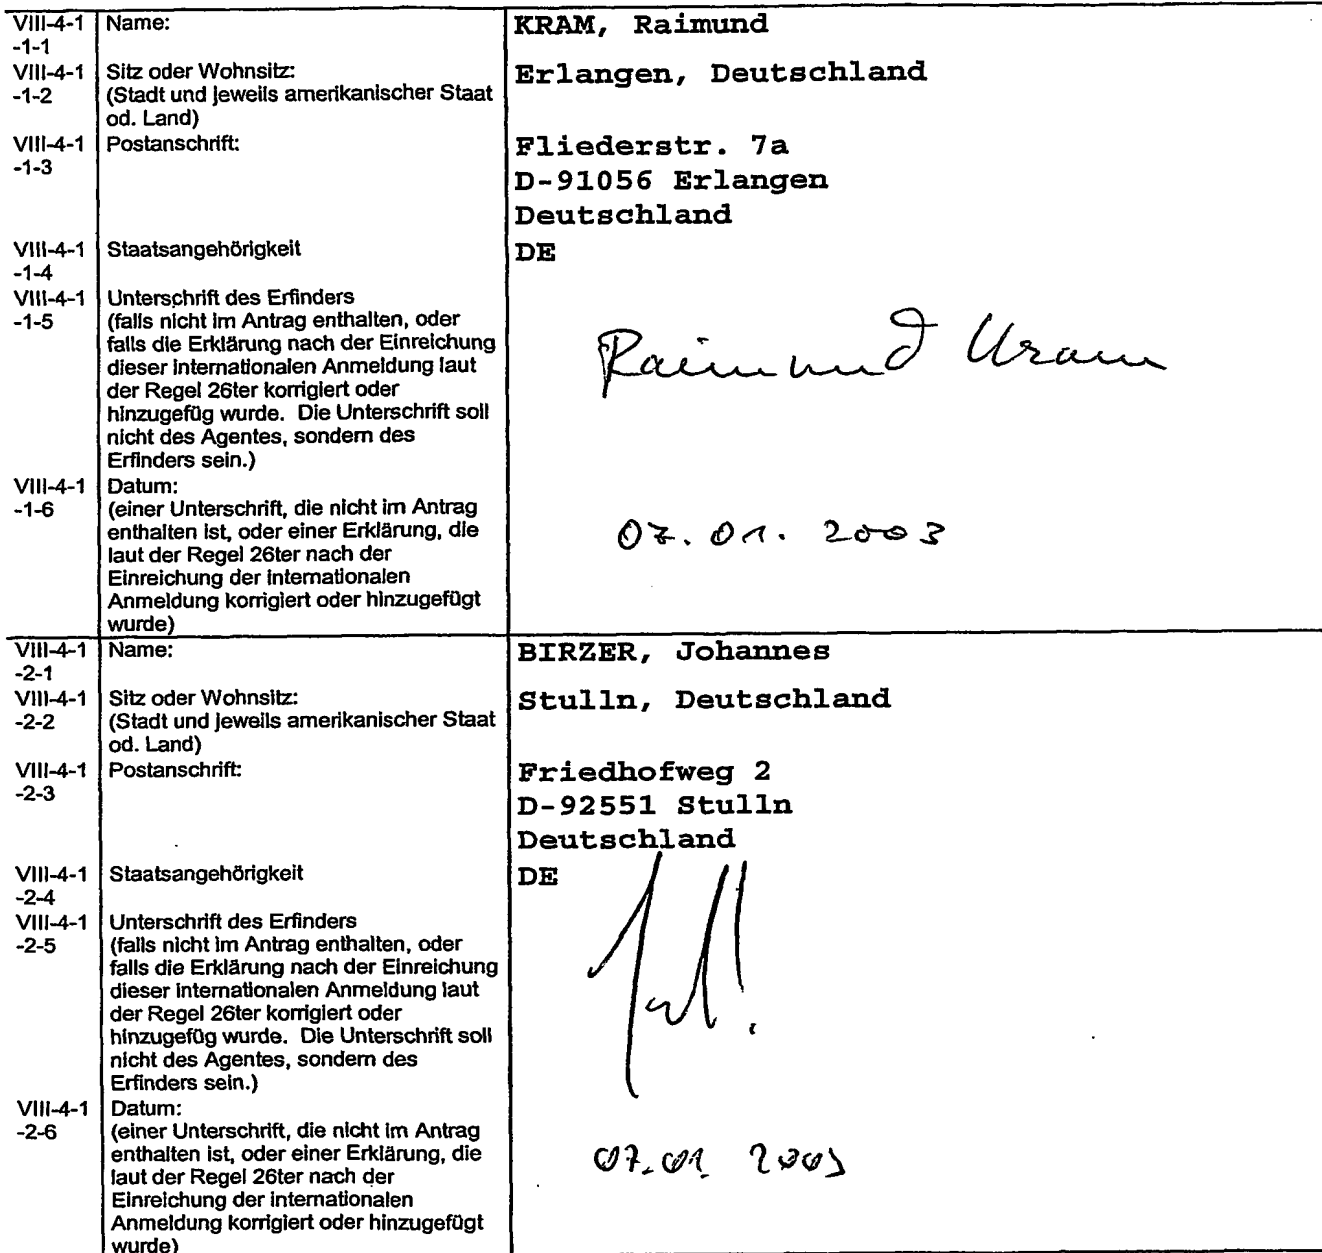 VIII-4-1 Name: KRAM, Raimund
-1-1
VIII-4-1 Sitz oder Wohnsitz: Erlangen, Deutschland
-1-2 (Stadt und jeweils amerikanischer Staat
od. Land)
VIII-4-1 Postanschrift: Fliederstr. 7a
-1-3 D-91056 Erlangen
Deutschland
VIII-4-1 Staatsangehörigkeit DE
-1-4
VIII-4-1 Unterschrift des Erfinders
-1-5 (falls nicht im Antrag enthalten, oder
falls die Erklärung nach der Einreichung
dieser internationalen Anmeldung laut
der Regel 26ter korrigiert oder
hinzugefüg wurde. Die Unterschrift soll
nicht des Agentes, sondern des
Erfinders sein.)
Raimund Kram
VIII-4-1 Datum:
-1-6 (einer Unterschrift, die nicht im Antrag
enthalten ist, oder einer Erklärung, die
laut der Regel 26ter nach der
Einreichung der internationalen
Anmeldung korrigiert oder hinzugefügt
wurde)
07.01.2003
VIII-4-1 Name: BIRZER, Johannes
-2-1
VIII-4-1 Sitz oder Wohnsitz: Stulln, Deutschland
-2-2 (Stadt und jeweils amerikanischer Staat
od. Land)
VIII-4-1 Postanschrift: Friedhofweg 2
-2-3 D-92551 Stulln
Deutschland
VIII-4-1 Staatsangehörigkeit DE
-2-4
VIII-4-1 Unterschrift des Erfinders
-2-5 (falls nicht im Antrag enthalten, oder
falls die Erklärung nach der Einreichung
dieser internationalen Anmeldung laut
der Regel 26ter korrigiert oder
hinzugefüg wurde. Die Unterschrift soll
nicht des Agentes, sondern des
Erfinders sein.)
VIII-4-1 Datum:
-2-6 (einer Unterschrift, die nicht im Antrag
enthalten ist, oder einer Erklärung, die
laut der Regel 26ter nach der
Einreichung der internationalen
Anmeldung korrigiert oder hinzugefügt
wurde)
07.01. 2003